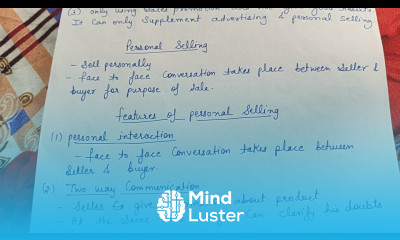 (3) only using sales promotion does not give good results.
It Can only Supplement advertising & personal selling
Personal Selling
- Sell personally
- face to face Conversation takes place between Seller &
buyer for purpose of sale.
features of personal Selling
(1) personal interaction
- face to face Conversation takes place between
Seller & buyer.
(2) Two way Communication
- Seller give about product
- At the same can clarify his doubts
Mind
Luster